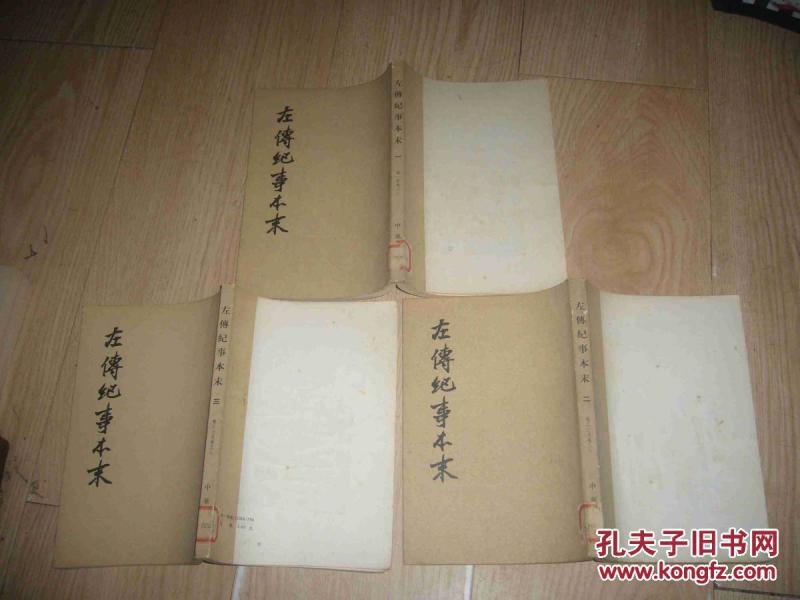 左傳紀事本末
左傳紀事本末 一
中
左傳紀事本末
左傳紀事本末 三
中華
左傳紀事本末
左傳紀事本末 二
中華
孔夫子旧书网
www.kongfz.com